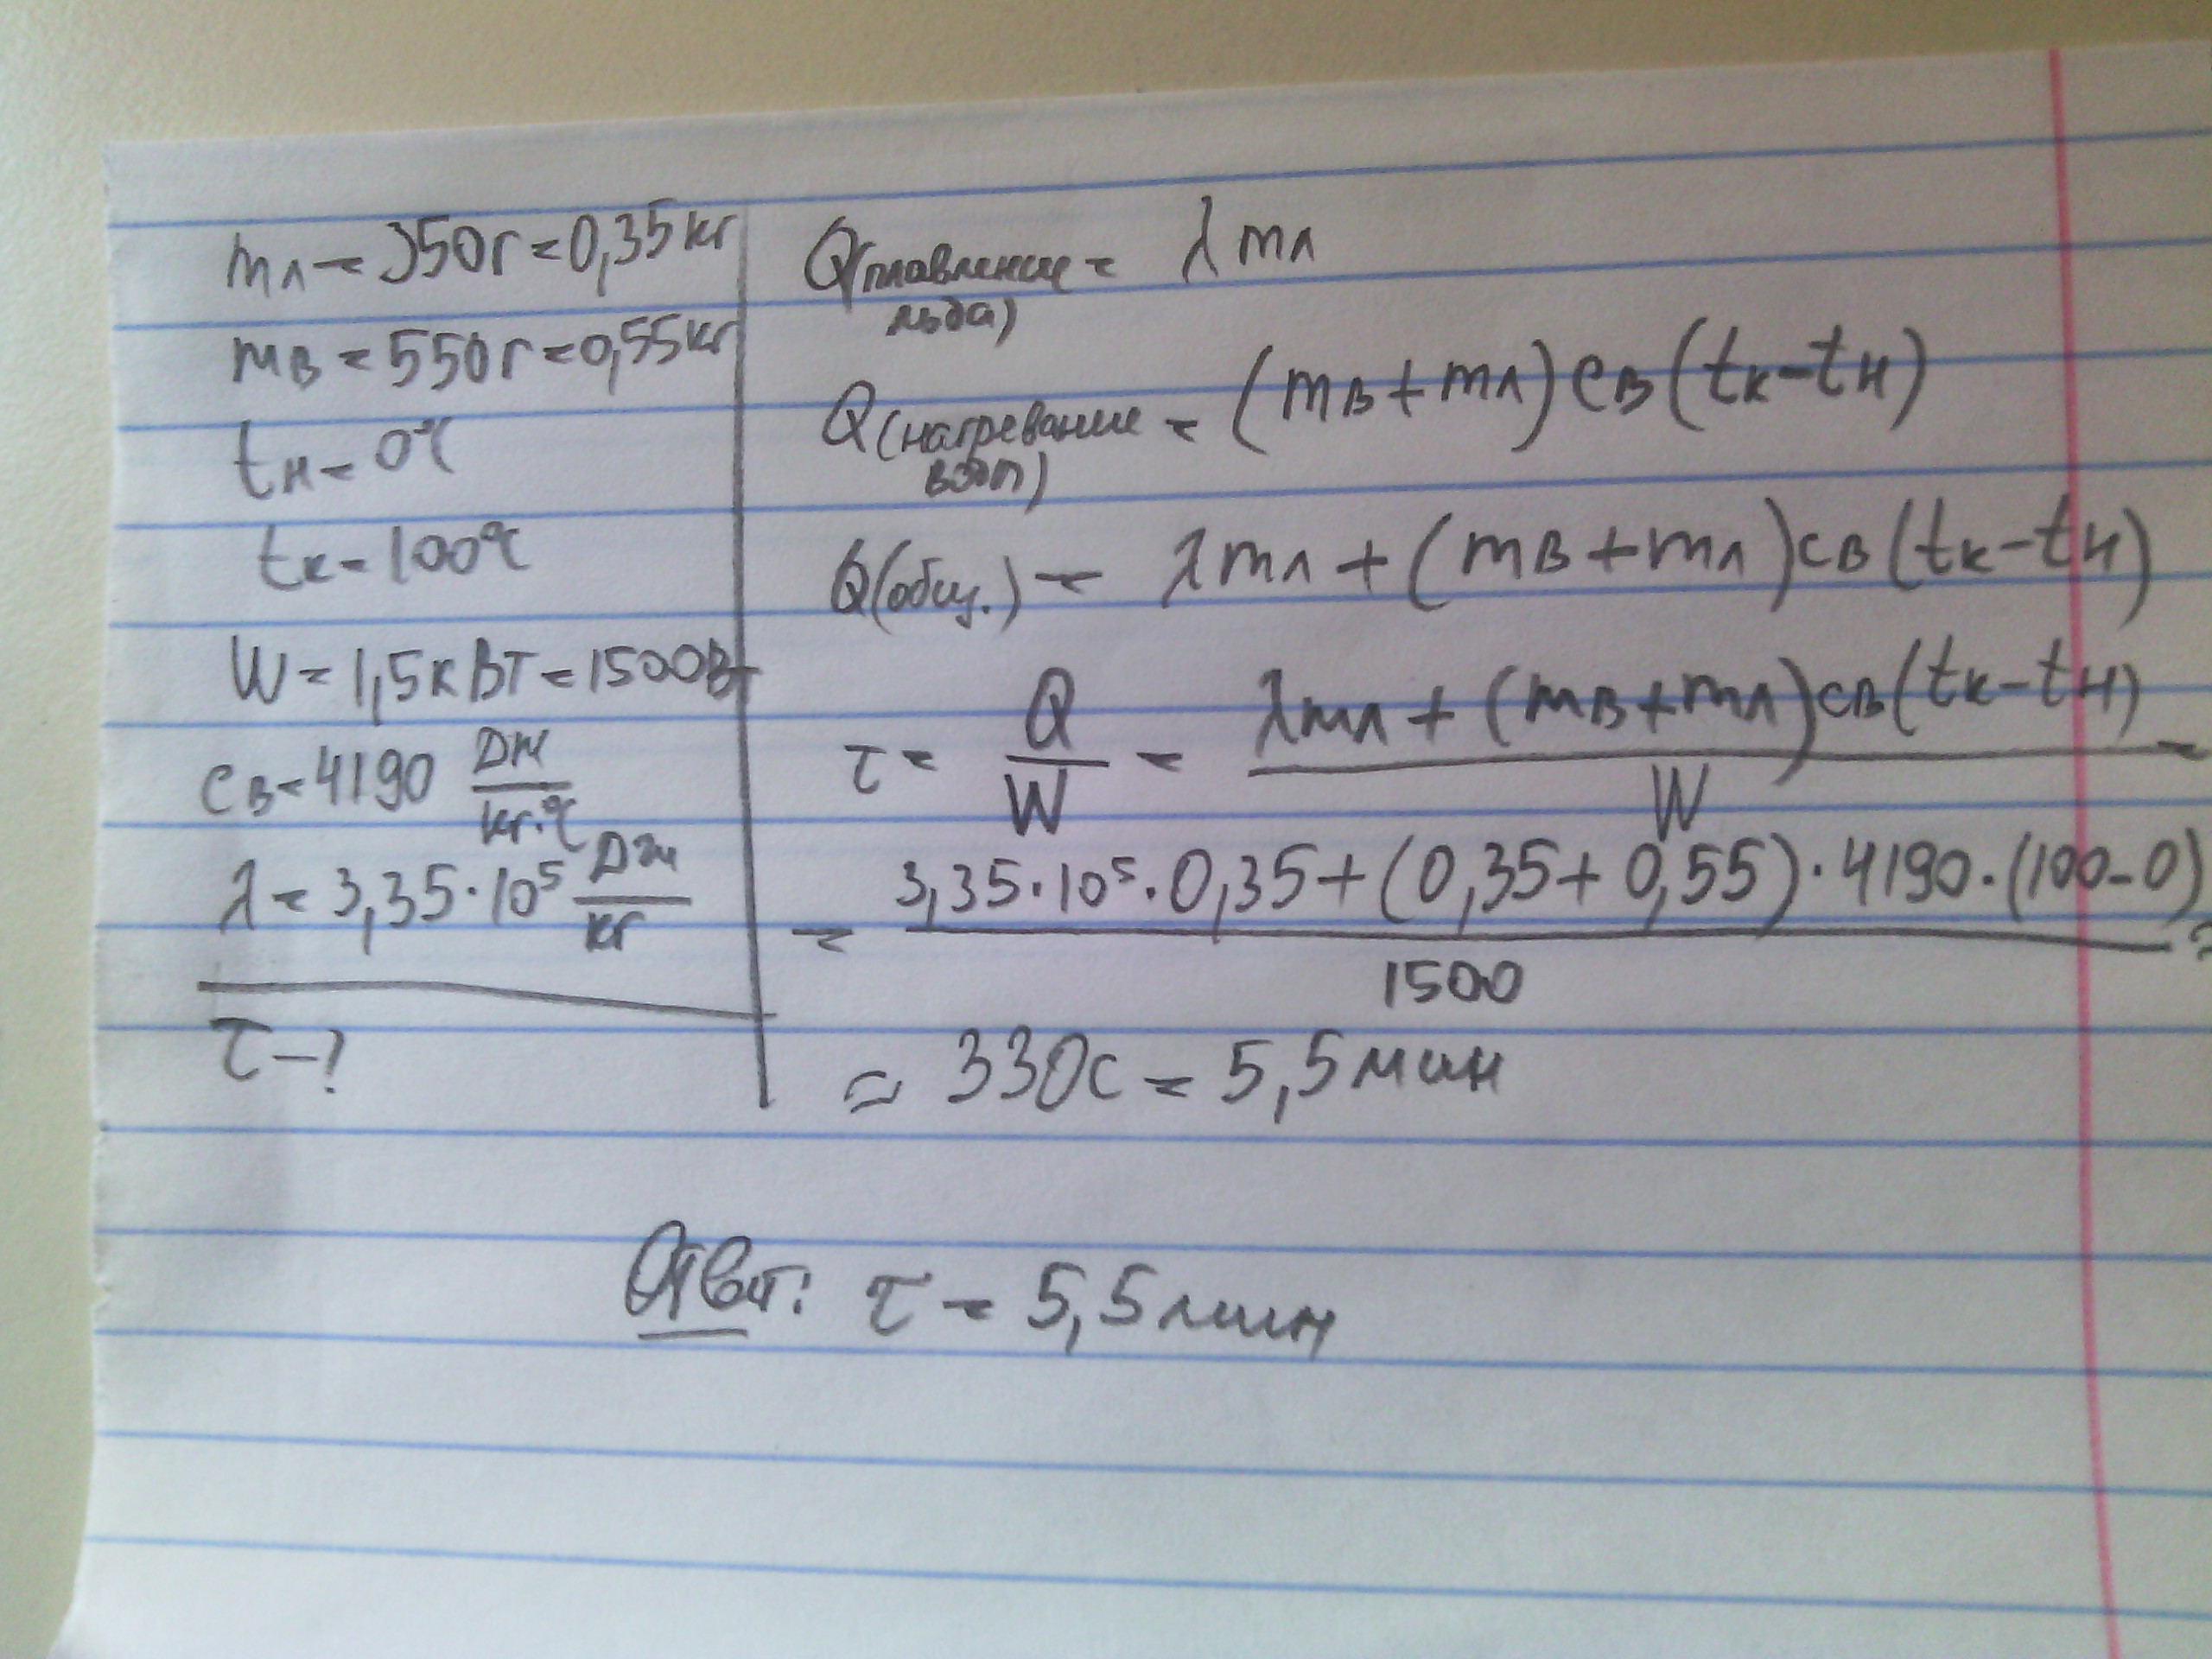 mл = 350г = 0,35кг
mв = 550г = 0,55кг
tн = 0°C
tк = 100°C
W = 1,5кВт = 1500Вт
cв = 4190 Дж/кг·°C
λ = 3,35·10⁵ Дж/кг
τ - ?
Q(плавление льда) = λmл
Q(нагревание воды) = (mв+mл)cв(tк-tн)
Q(общ.) = λmл + (mв+mл)cв(tк-tн)
τ = Q/W = λmл + (mв+mл)cв(tк-tн)/W =
= 3,35·10⁵·0,35+(0,35+0,55)·4190·(100-0)/1500 =
= 330с = 5,5мин
Ответ: τ = 5,5мин